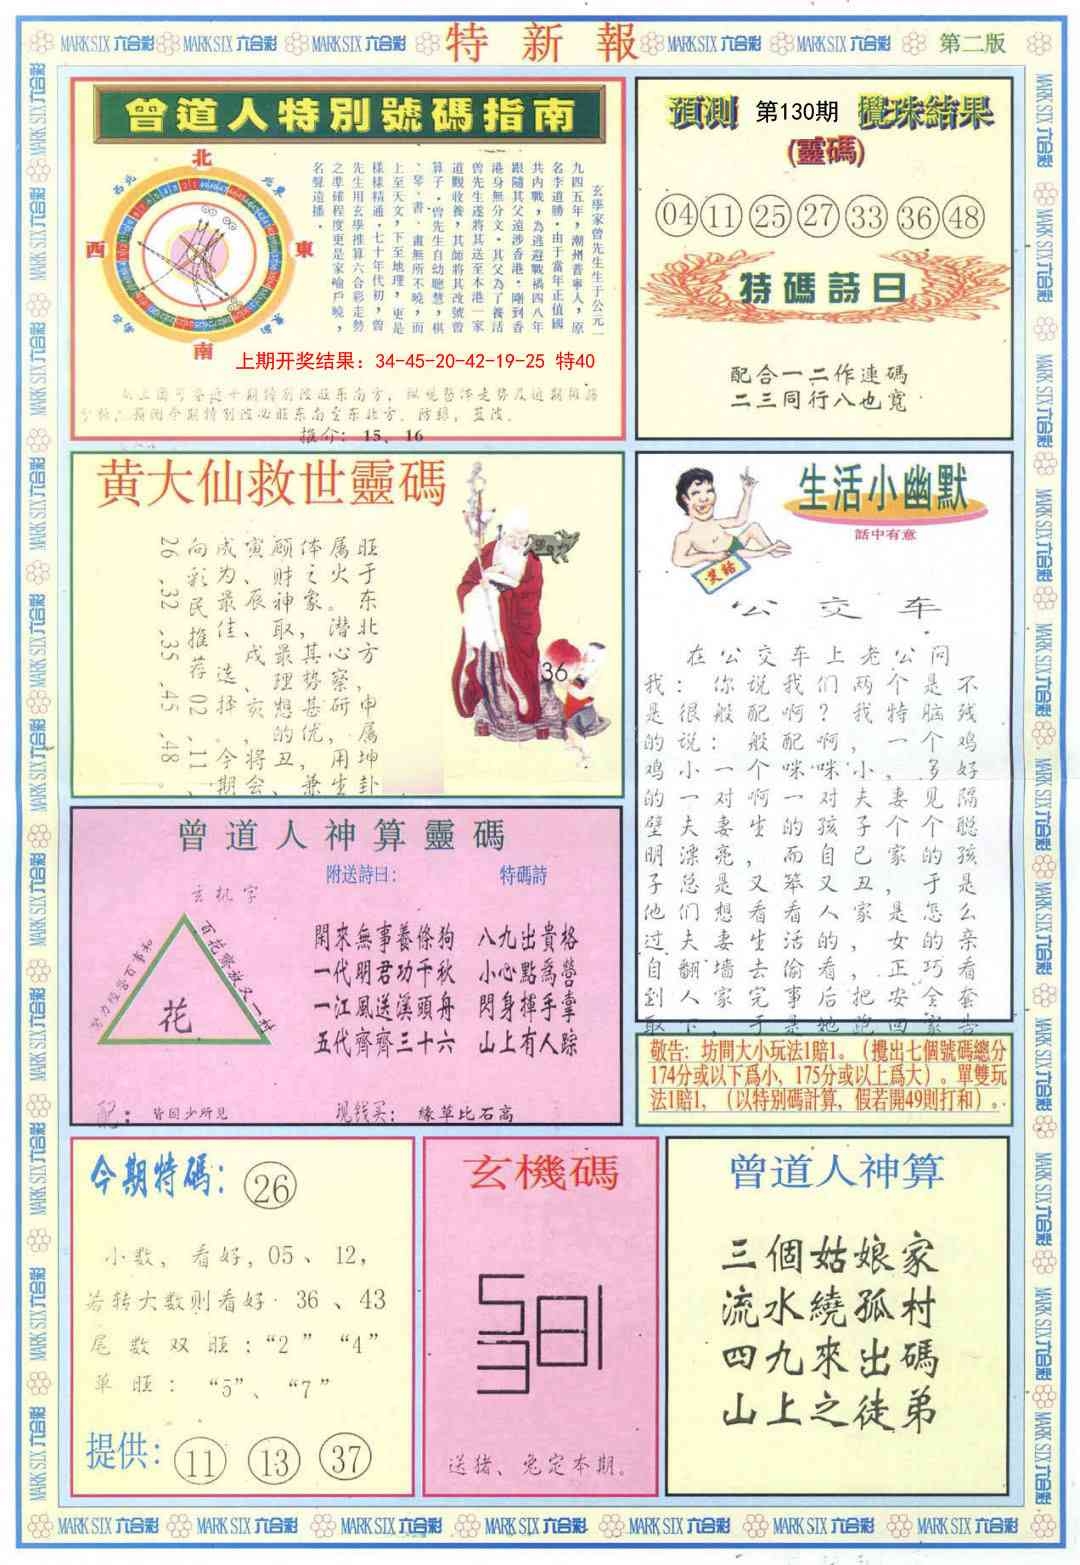 MARK SIX 六合彩 MARK SIX 六合彩 MARK SIX 六合彩 特新報 MARK SIX 六合彩 MARK SIX 六合彩 第二版
曾道人特別號碼指南
北
西北
東北
西
東
南
玄學家曾先生生于公元一
九四五年,潮州普寧人,原
名李道勝·由于當年正值國
共内戰,為逃避戰禍四八年
跟隨其父遠涉香港·剛到香
港身無分文·其父為了養活
曾先生遂將其送至本港一家
道觀收養,其師將其改號曾
算子·曾先生自幼聰慧,棋
、琴、書、畫無所不曉,而
上至天文,下至地理,更是
樣樣精通·七十年代初,曾
先生用玄學推算六合彩走勢
之準確程度更是家喻戶曉,
名聲遠播·
上期开奖结果：34-45-20-42-19-25 特40
推介：15、16
預測 第130期 攪珠結果
(靈碼)
04 11 25 27 33 36 48
特碼詩曰
配合一二作連碼
二三同行八也寬
黄大仙救世靈碼
旺于东北方，申属坤卦
属火。潜心察研，用生
体之家，其势甚优，兼
顾财神取最理想的丑、
寅、辰、戌、亥，将会
成为最佳选择。今期
向彩民推荐02.11.
26.32.35.45.48。
36
生活小幽默
話中有意
笑話
公交车
在公交车上老公问
我：你说我们两个是不
是很般配啊？我特脑残
的说：般配啊，一个鸡
鸡小一个咪咪小，多好
的一对啊一对夫妻见隔
壁夫妻生的孩子个个聪
明漂亮，而自己家的孩
子总是又笨又丑，于是
他们想看看人家是怎么
过夫妻生活的，女的亲
自翻墙去偷看，正巧看
到人家完事后把安全套
取下，于是她跑回家告
敬告：坊間大小玩法1賠1。（攪出七個號碼總分
174分或以下爲小，175分或以上爲大）。單雙玩
法1賠1，（以特别碼計算，假若開49則打和）。
曾道人神算靈碼
玄机字
花
百花齊放又一村
附送詩曰：
閑來無事養條狗
一代明君功千秋
一江風送溪頭舟
五代齊齊三十六
特碼詩
八九出貴格
小心點爲營
閃身揮手掌
山上有人踪
配：皆因少所見
现钱买：緣草比石高
今期特碼：26
小数，看好，05、12，
若转大数则看好 36、43
尾数双旺：“2” “4”
单旺：“5”、“7”
提供：11 13 37
玄機碼
送猪、兔定本期。
曾道人神算
三個姑娘家
流水繞孤村
四九來出碼
山上之徒弟
MARK SIX 六合彩 MARK SIX 六合彩 MARK SIX 六合彩 MARK SIX 六合彩 MARK SIX 六合彩 MARK SIX 六合彩 MARK SIX 六合彩